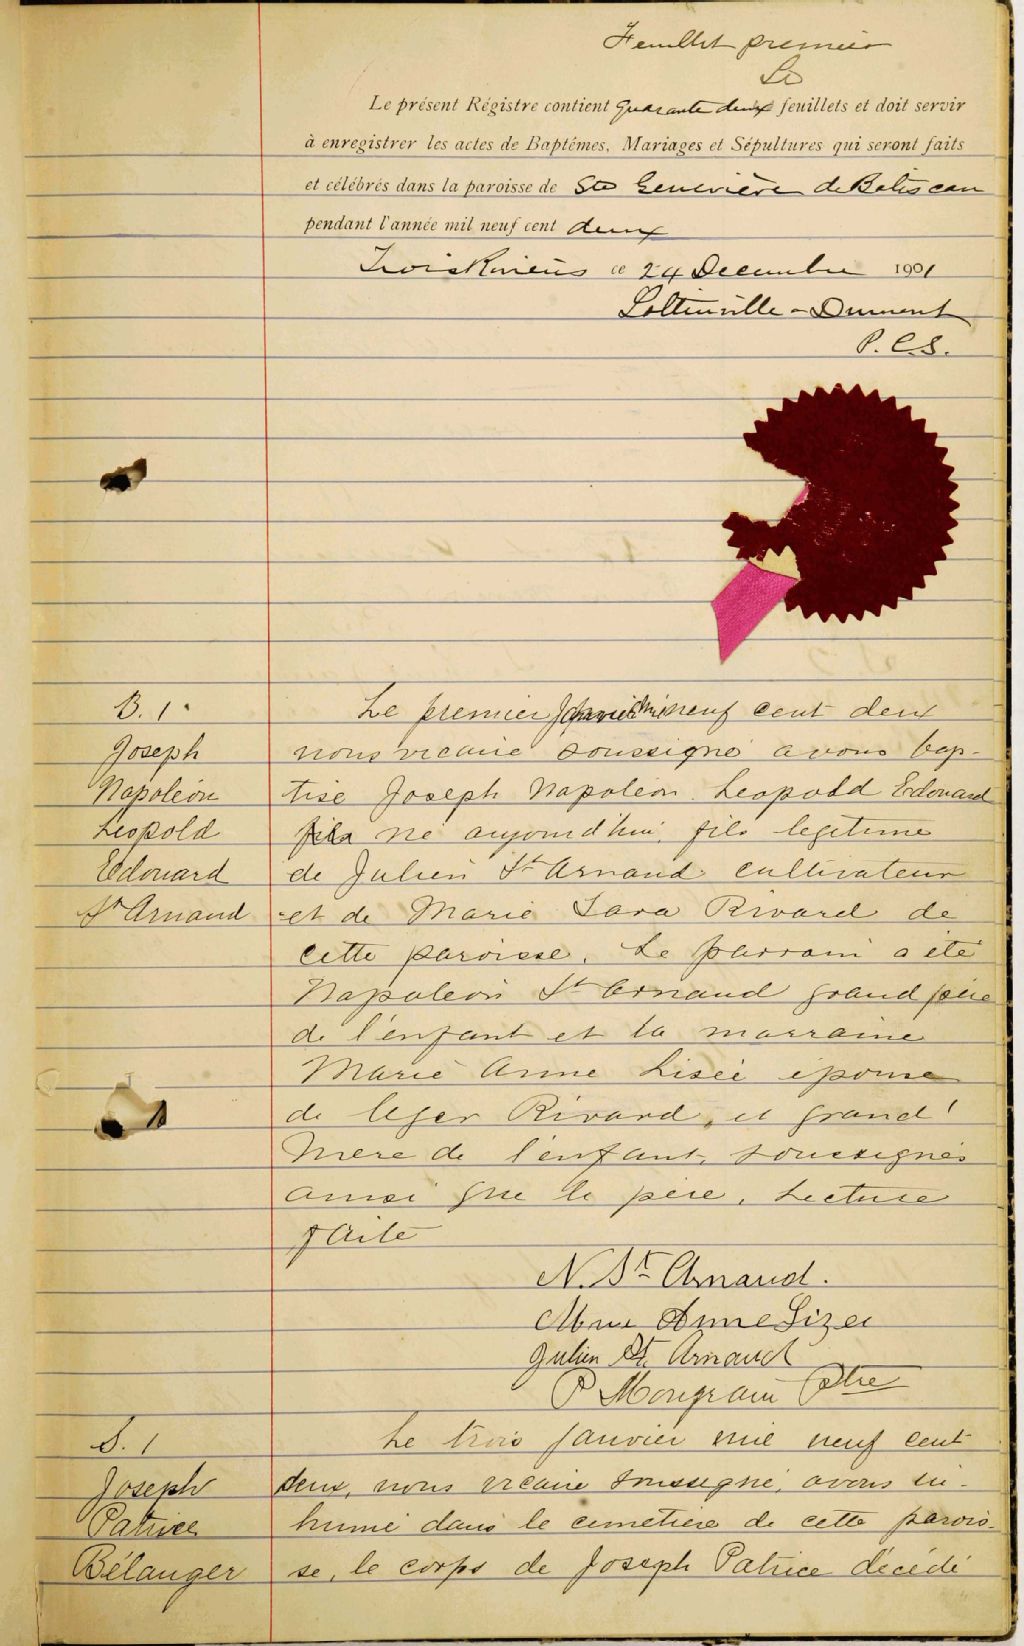 Feuillet premier
Le présent Régistre contient quarante deux feuillets et doit servir
à enregistrer les actes de Baptêmes, Mariages et Sépultures qui seront faits
et célébrés dans la paroisse de Ste Geneviève de Batiscan
pendant l'année mil neuf cent deux
Trois Rivières ce 24 Decembre 1901
Lottinville Dumont
P. C. S.
B. 1
Joseph
Napoléon
Leopold
Edouard
St Arnaud
Le premier Janvier mil neuf cent deux
nous vicaire soussigné avons bap-
tisé Joseph Napoléon Leopold Edouard
né aujourd'hui, fils legitime
de Julien St Arnaud cultivateur
et de Marie Sara Rivard de
cette paroisse. Le parrain a été
Napoleon St Arnaud grand père
de l'enfant et la marraine
Marie Anne Lisée épouse
de leger Rivard, et grand'
mere de l'enfant, soussignés
ainsi que le père. Lecture
faite
N. St Arnaud.
Anne Lizee
Julien St. Arnaud
P Mongrain Ptre
S. 1
Joseph
Patrice
Bélanger
Le trois janvier mil neuf cent
deux, nous vicaire soussigné, avons in-
humé dans le cimetière de cette parois-
se, le corps de Joseph Patrice décédé